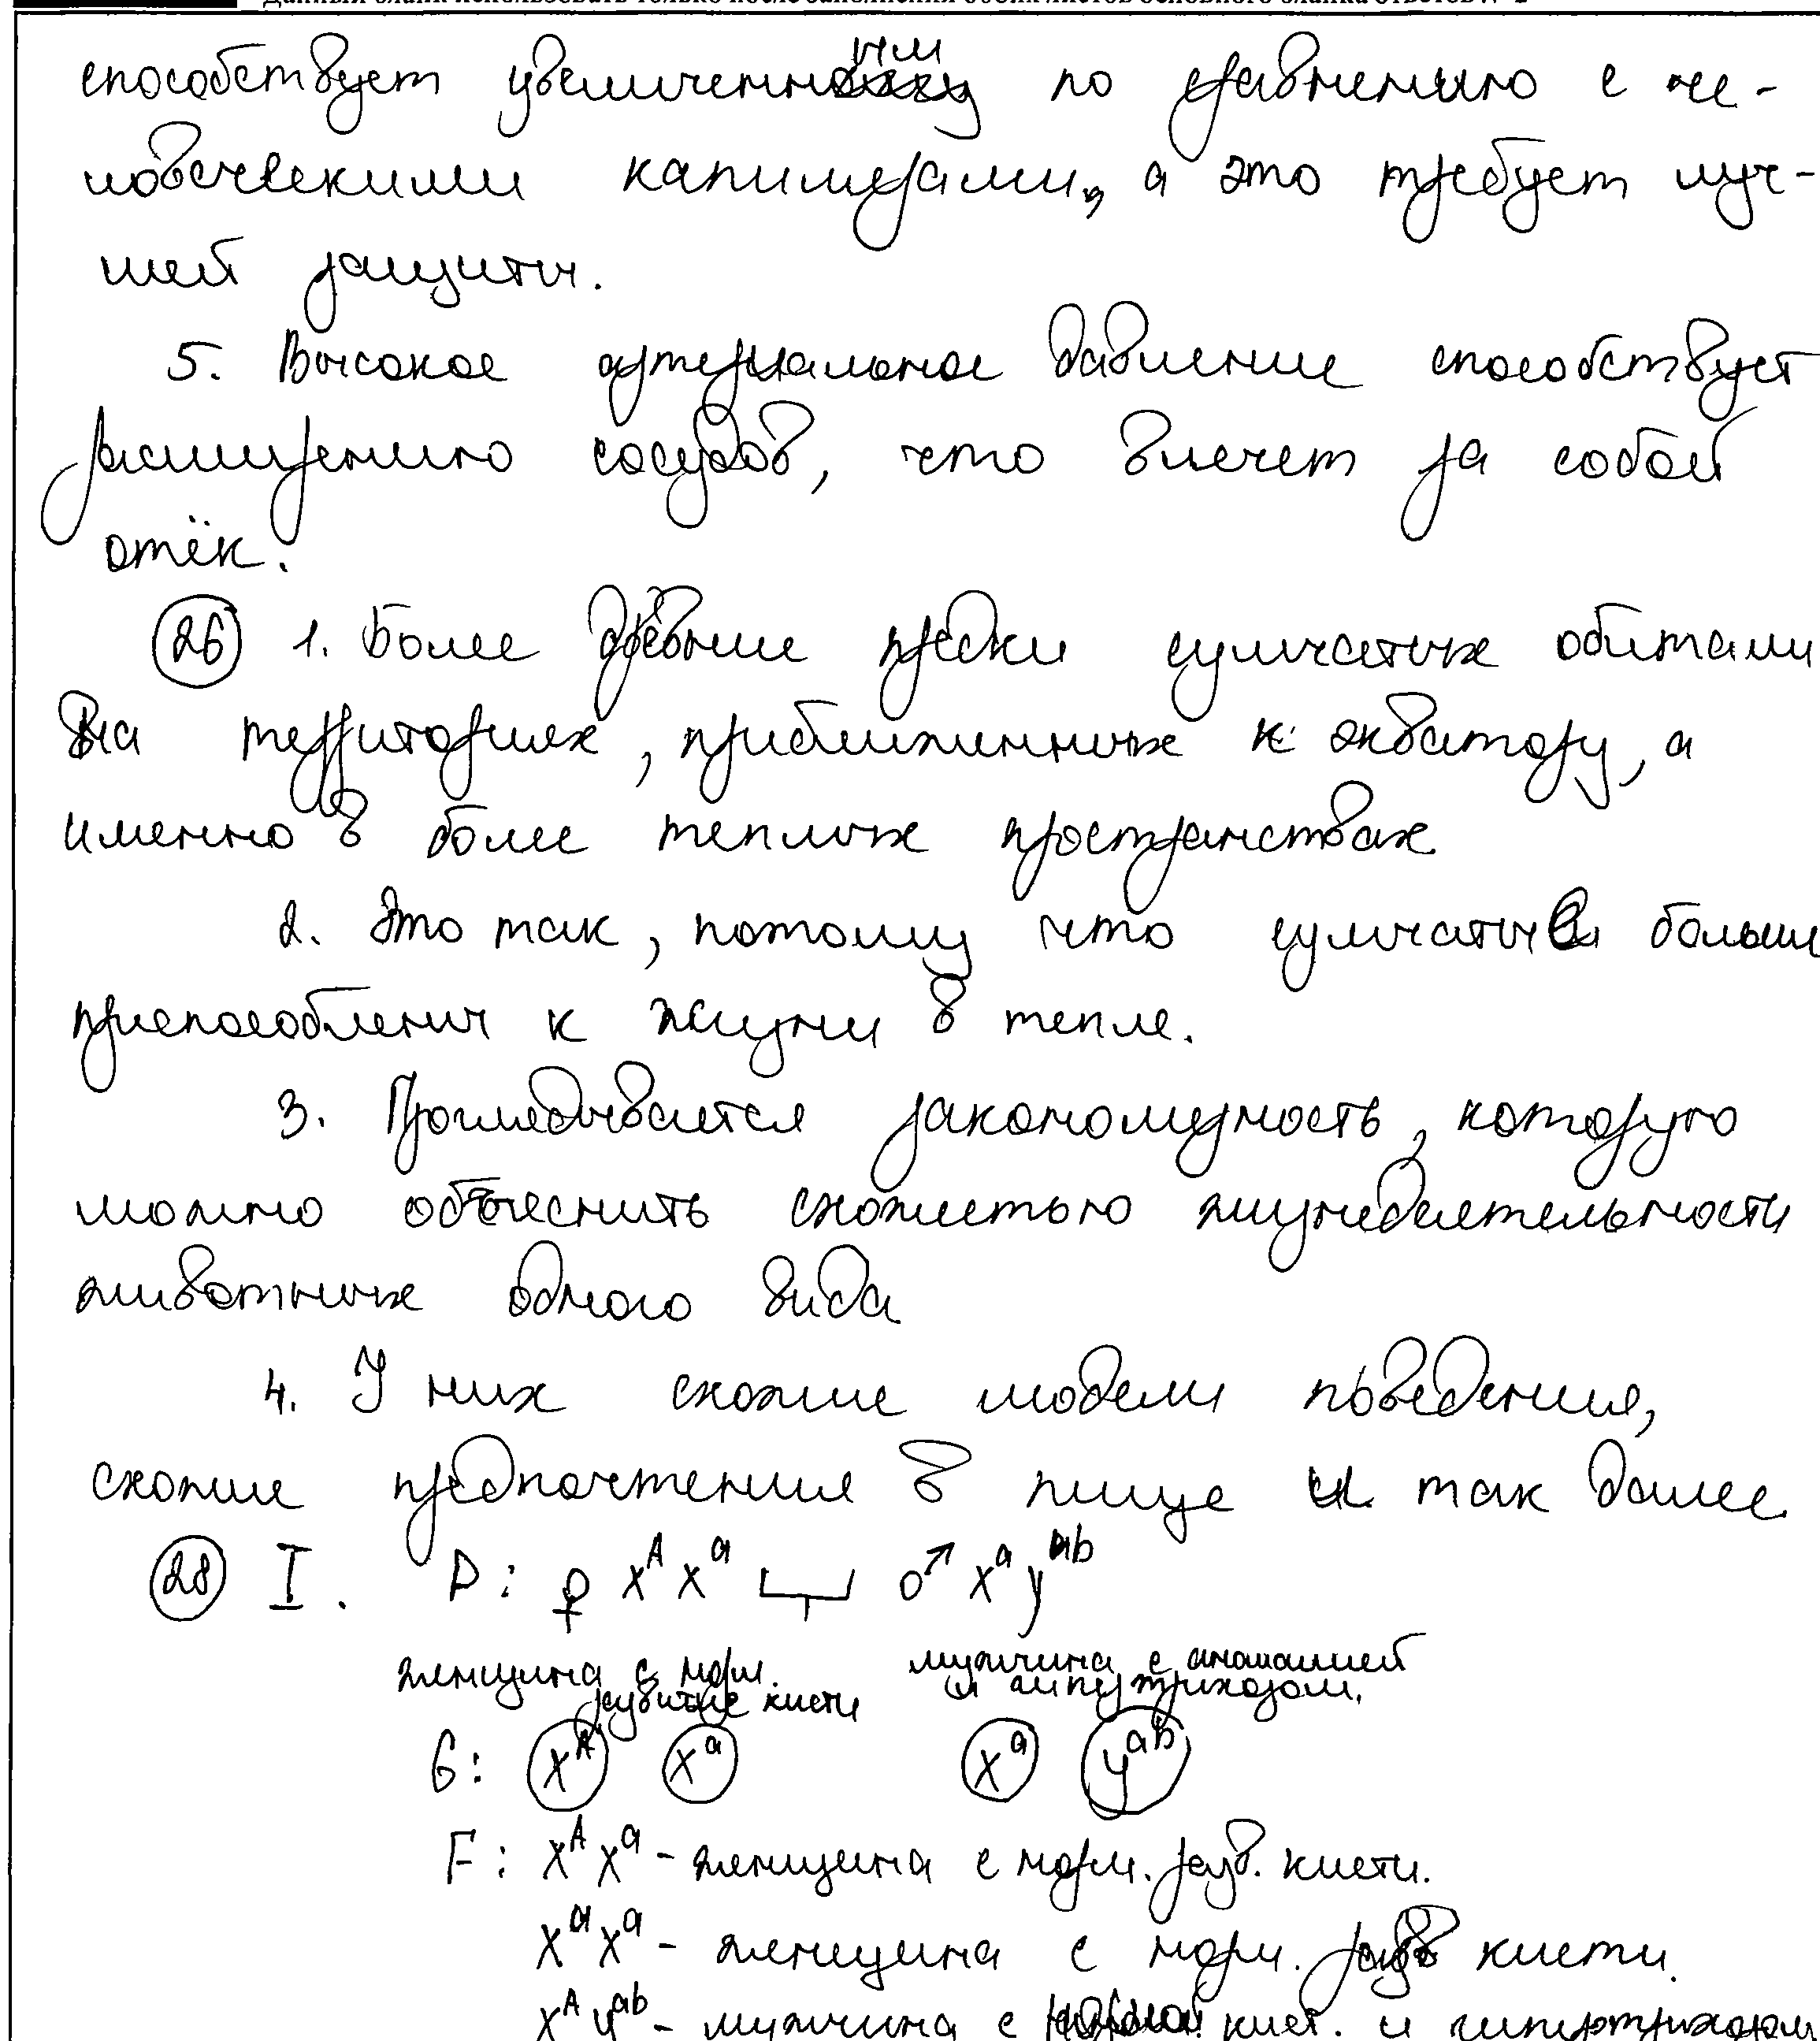 Данный бланк использовать только после заполнения обоих листов основного бланка ответов № 2
способствует увеличенным по сравнению с че-
ловеческими капилярами, а это требует луч-
шей защиты.
5. Высокое артериальное давление способствует
расширению сосудов, что влечет за собой
отёк.
26 1. Более древние предки сумчатых обитали
на территориях, приближенных к экватору, а
именно в более теплых пространствах
2. Это так, потому что сумчатые больше
приспособлены к жизни в тепле.
3. Проглядывается закономерность, которую
можно объяснить схожестью жизнедеятельности
животных одного вида
4. У них схожие модели поведения,
схожие предпочтения в пище и так далее.
28 I. P: ♀ X^A X^a ♂ X^a Y^ab
женщина с норм. развитие кисти мужчина с аномалией и гипертрихозом.
G: X^A X^a X^a Y^ab
F: X^A X^a - женщина с норм. разв. кисти.
X^a X^a - женщина с норм. разв кисти.
X^A Y^ab - мужчина с кист. и гипертрихозом